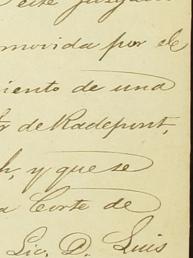 este juzgado
movida por el
iento de una
de Radepont,
h, y que se
a Corte de
Lic. D. Luis